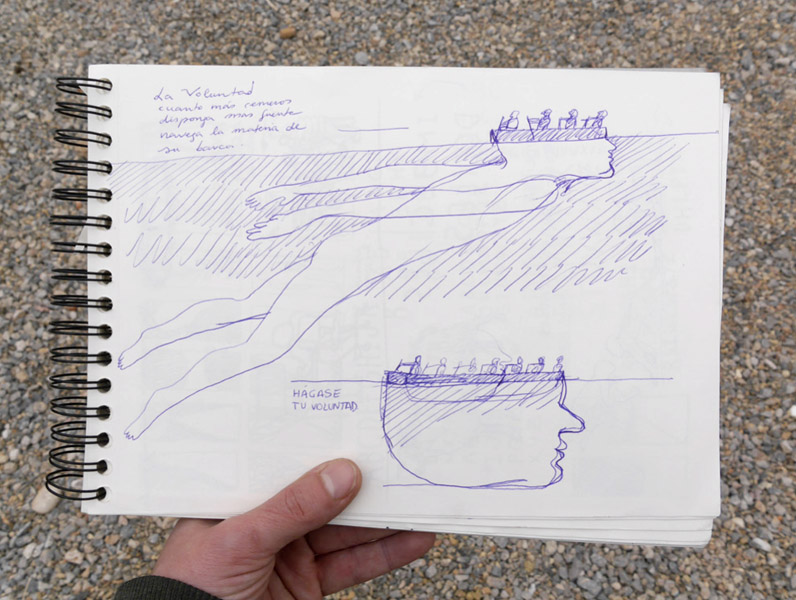 La Voluntad
cuanto más remeros
disponga más fuerte
navega la materia de
su barca.
HÁGASE
TU VOLUNTAD.